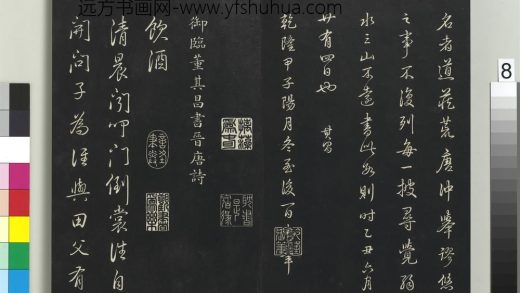 远方书画网-www.yfshuhua.com
名者道荒唐沖舉謬悠
之事不復列每一披尋覺弱
水三山不遠書此數則時乙丑六月
廿有四日也 其昌
乾隆甲子陽月冬至後一日
御臨董其昌書晉唐詩
飲酒
清晨聞叩門倒裳往自
開問子為誰與田父有
8